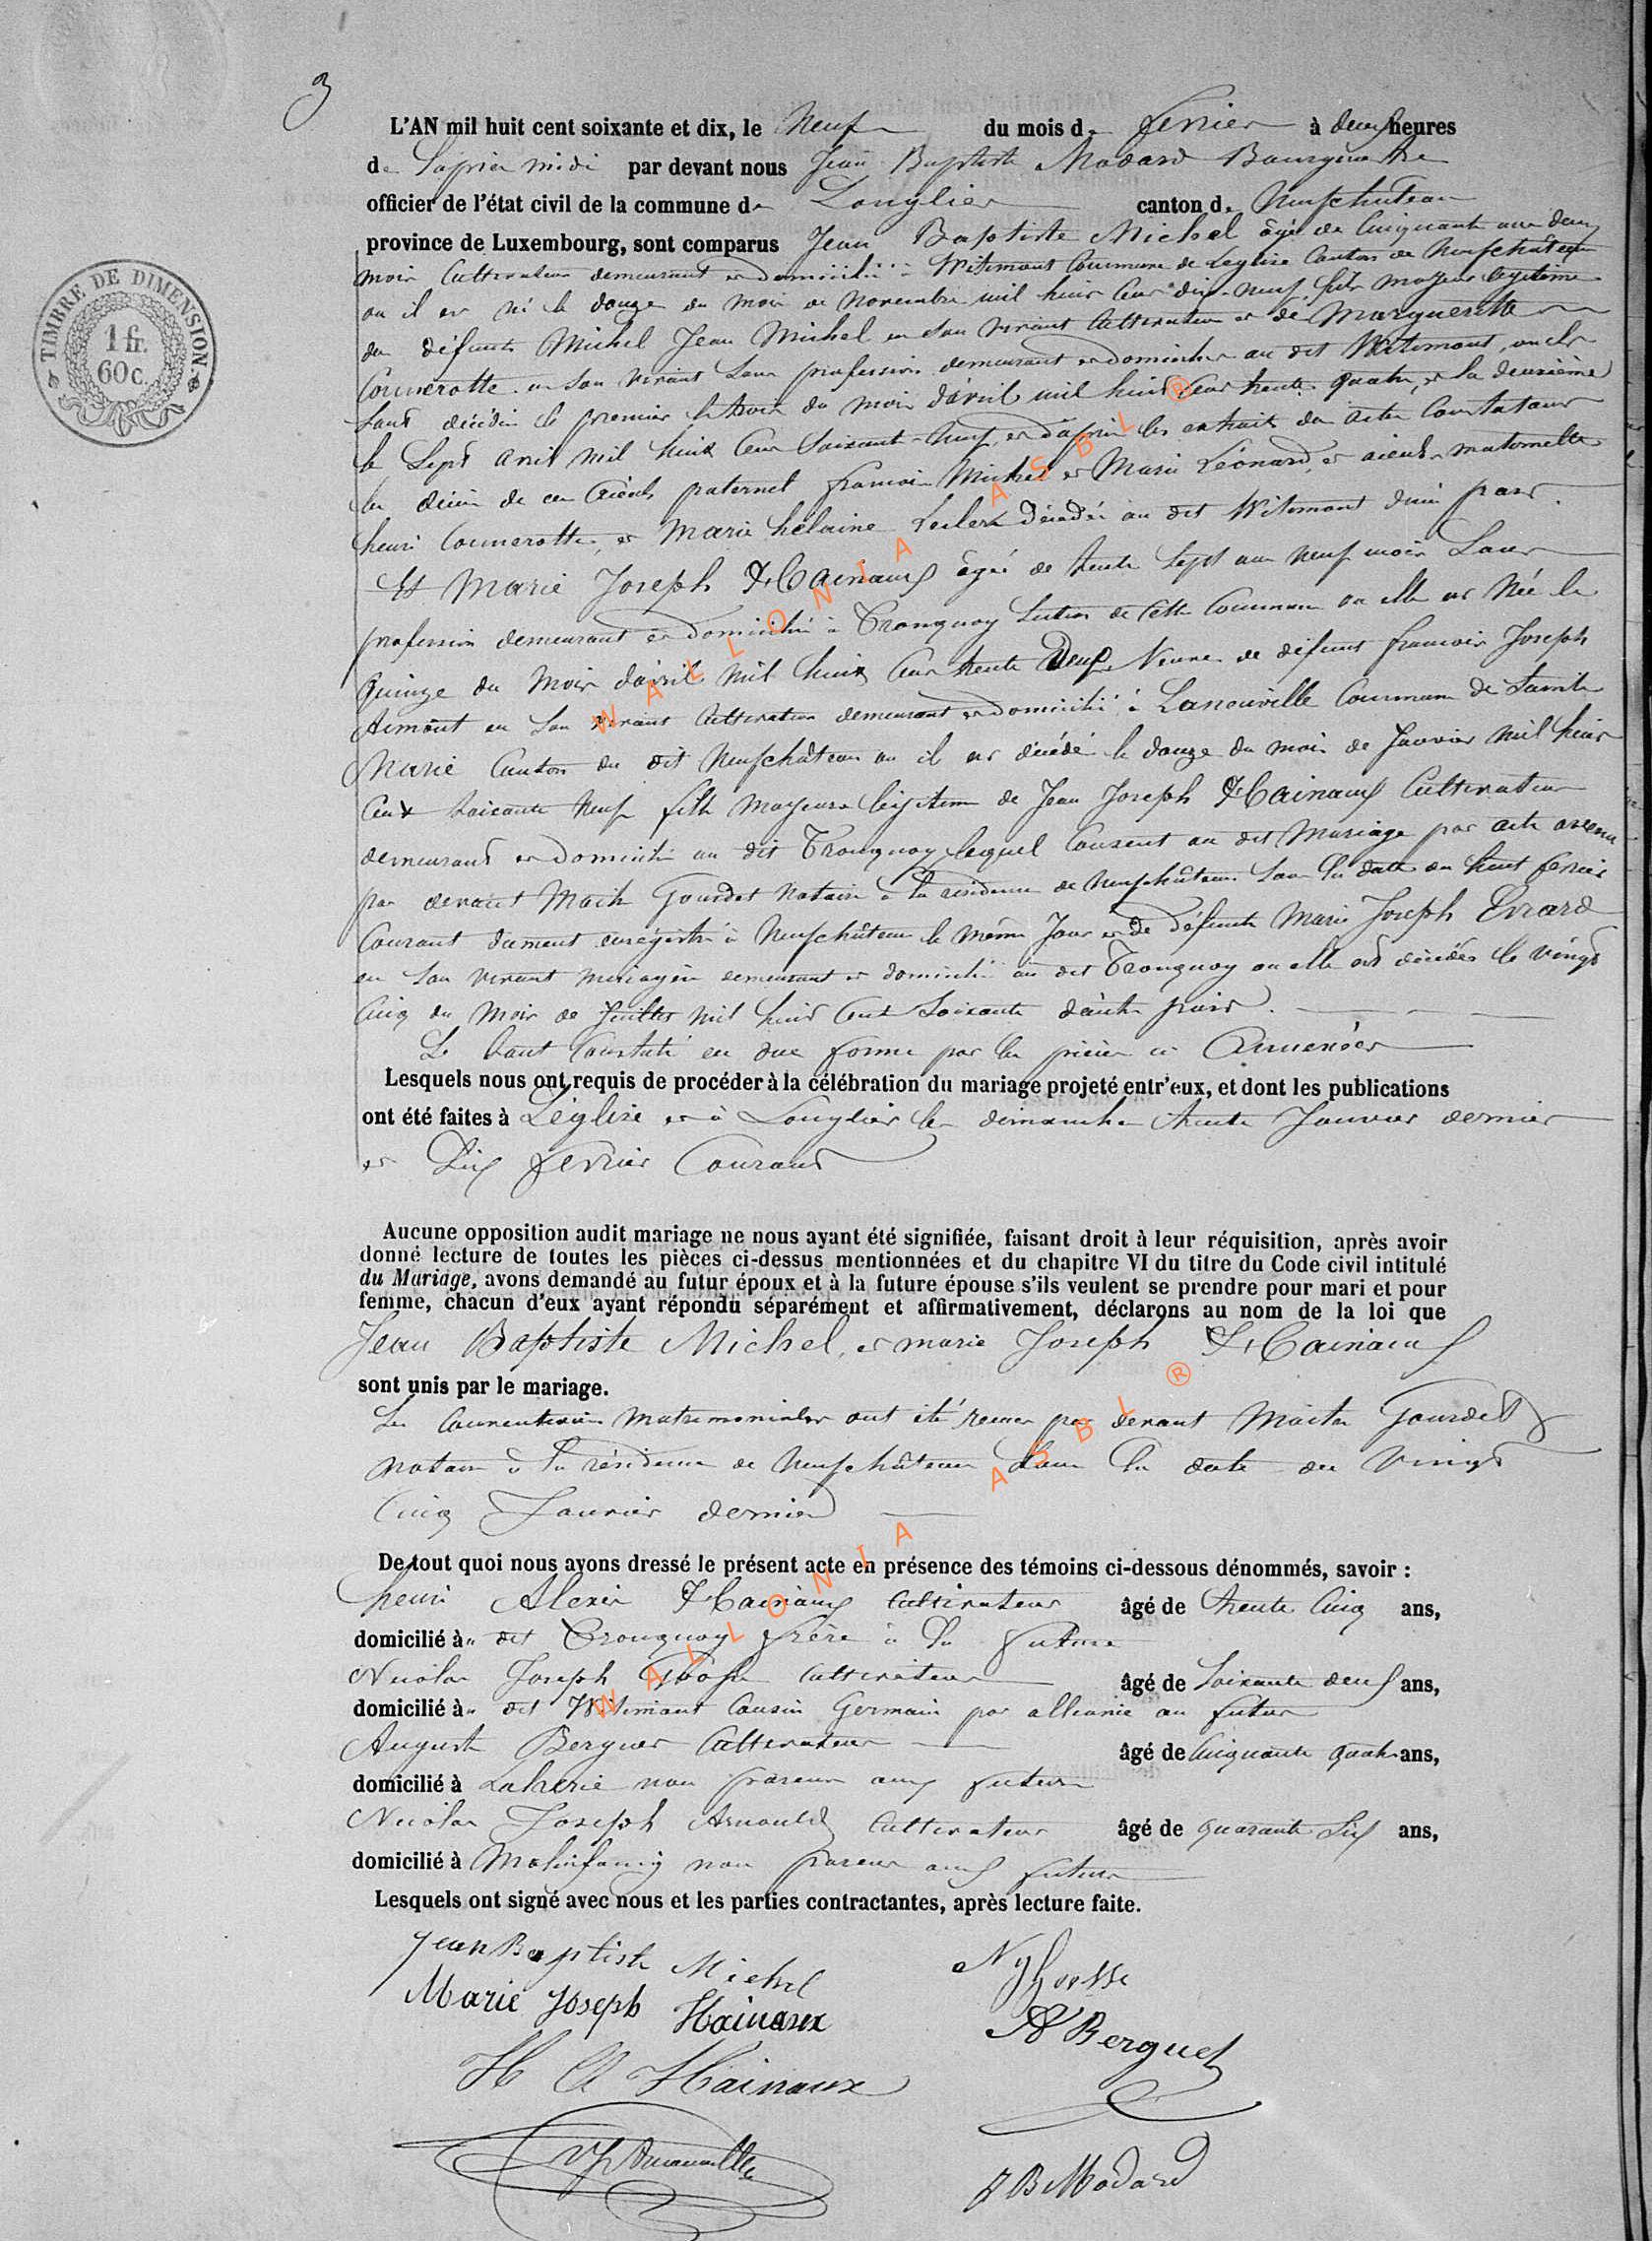 3
L'AN mil huit cent soixante et dix, le Neuf du mois de fevrier à deux heures
de l'après midi par devant nous Jean Baptiste Modard Bourgmestre
officier de l'état civil de la commune de Longlier canton de Neufchateau
province de Luxembourg, sont comparus Jean Baptiste Michel âgé de Cinquante ans deux
mois Cultivateur demeurant et domicilié à Witimont Commune de Leglise Canton de Neufchateau
ou il est né le douze du mois de Novembre mil huit Cent dix-neuf fils majeur légitime
des défunts Michel Jean Michel en son vivant Cultivateur et de Marguerite
Connerotte en son vivant sans profession demeurant et domiciliés au dit Witimont, ou ils
sont décédés le premier le trois du mois d'avril mil huit Cent trente quatre, et la deuxième
le Sept avril mil huit Cent Soixante-Neuf, et d'après les extraits des actes Constatant
les décès de ses aieuls paternel francois Michel et Marie Léonard, et aieuls maternelle
henri Connerotte, et Marie hélaine Leclere décédés au dit Witimont d'une part.
Et Marie Joseph Hainaux âgée de trente Sept ans neuf mois Sans
profession demeurant et domiciliée à Tronquoy Section de Cette Commune ou elle est Née le
Quinze du Mois d'avril mil huit Cent trente Deux Veuve de défunt francois Joseph
Aimont en son vivant Cultivateur demeurant et domicilié à Lanouville Commune de Sainte
Marie Canton du dit Neufchâteau ou il est décédé le douze du mois de Janvier mil huit
Cent soixante Neuf fille majeure légitime de Jean Joseph Hainaux Cultivateur
demeurant et domicilié au dit Tronquoy lequel Consent au dit Mariage par acte avenu
par devant Maitre Gourdet Notaire à la résidence de Neufchâteau sous la date du huit fevrier
Courant dument enrégistré à Neufchâteau le même Jour et de défunte Marie Joseph Evrard
en son vivant ménagère demeurant et domiciliée au dit Tronquoy ou elle est décédée le vingt
Cinq du Mois de Juillet mil huit Cent Soixante d'autre part.
Le tout Constaté en due forme par les pièces ci Annexées
Lesquels nous ont requis de procéder à la célébration du mariage projeté entr'eux, et dont les publications
ont été faites à Léglise et à Longlier les dimanches trente Janvier dernier
et Six fevrier Courant
Aucune opposition audit mariage ne nous ayant été signifiée, faisant droit à leur réquisition, après avoir
donné lecture de toutes les pièces ci-dessus mentionnées et du chapitre VI du titre du Code civil intitulé
du Mariage, avons demandé au futur époux et à la future épouse s'ils veulent se prendre pour mari et pour
femme, chacun d'eux ayant répondu séparément et affirmativement, déclarons au nom de la loi que
Jean Baptiste Michel, et marie Joseph Hainaux
sont unis par le mariage.
Les Conventions matrimoniales ont été reçues par devant Maitre Gourdet
notaire à la résidence de Neufchâteau sous la date du Vingt
Cinq Janvier dernier
De tout quoi nous avons dressé le présent acte en présence des témoins ci-dessous dénommés, savoir :
henri Alexis Hainaux Cultivateur âgé de trente Cinq ans,
domicilié au dit Tronquoy frère à la future
Nicolas Joseph Cultivateur âgé de Soixante deux ans,
domicilié au dit Witimont Cousin Germain par alliance au futur
August Berguet Cultivateur âgé de Cinquante quatre ans,
domicilié à Laherie non parent aux futurs
Nicolas Joseph Arnould Cultivateur âgé de quarante Six ans,
domicilié à Molinfaing non parent aux futurs
Lesquels ont signé avec nous et les parties contractantes, après lecture faite.
Jean Baptiste Michel
Marie Joseph Hainaux
H A Hainaux
A Berguet
J B Modard
TIMBRE DE DIMENSION.
1 fr.
60 c.
WALLONIA ASBL ®
WALLONIA ASBL ®